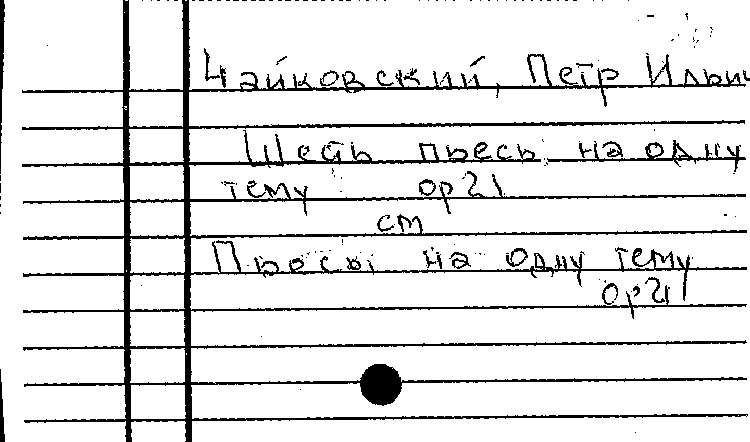 Чайковский, Петр Ильич
Шесть пьесы на одну
тему op21
см
Пьесы на одну тему
op21